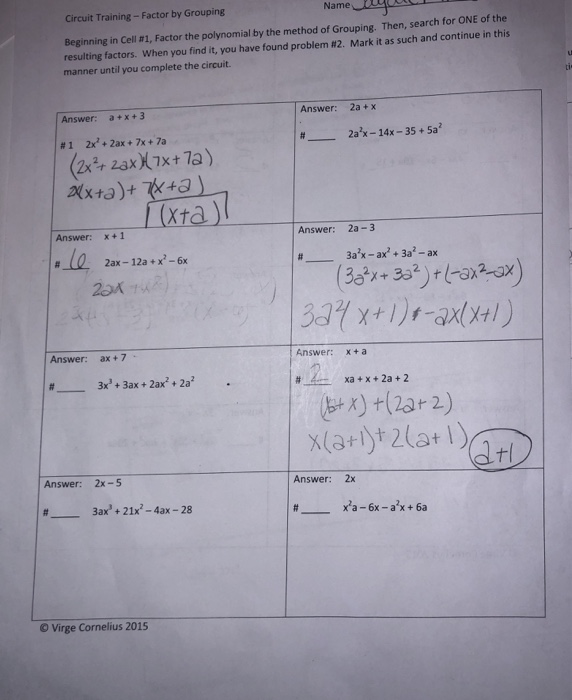 Circuit Training – Factor by Grouping
Name
Beginning in Cell #1, Factor the polynomial by the method of Grouping. Then, search for ONE of the
resulting factors. When you find it, you have found problem #2. Mark it as such and continue in this
manner until you complete the circuit.
Answer: a + x + 3
#1 2x² + 2ax + 7x + 7a
(2x²+ 2ax)(7x+7a)
2x(x+a)+ 7(x+a)
(x+a)
Answer: 2a + x
# ____ 2a²x – 14x – 35 + 5a²
Answer: x + 1
# 6 2ax – 12a + x² – 6x
2ax
Answer: 2a – 3
# ____ 3a²x – ax² + 3a² – ax
(3a²x+3a²)+(-ax²-ax)
3a²(x+1)+-ax(x+1)
Answer: ax + 7
# ____ 3x³ + 3ax + 2ax² + 2a²
Answer: x + a
# 2 xa + x + 2a + 2
+x)+(2a+2)
x(a+1)+2(a+1)
a+1
Answer: 2x – 5
# ____ 3ax³ + 21x² – 4ax – 28
Answer: 2x
# ____ x²a – 6x – a²x + 6a
© Virge Cornelius 2015